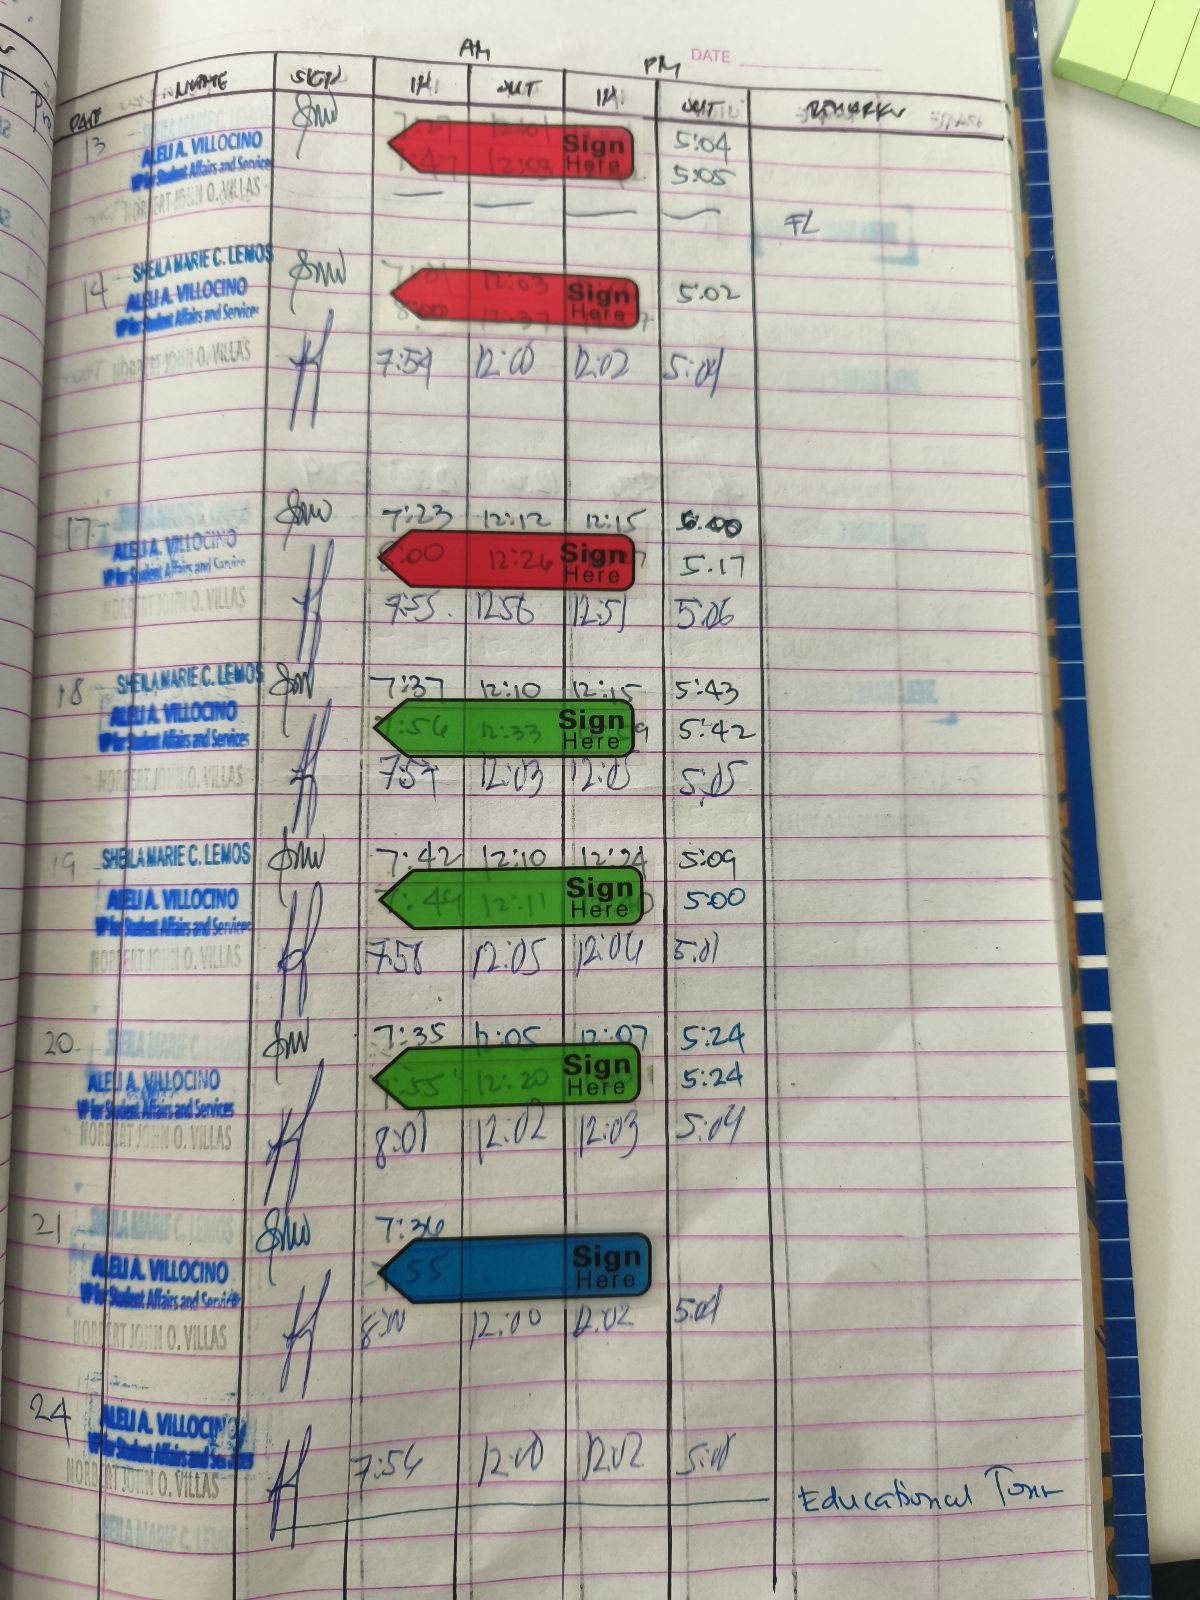 DATE
AM PM
DATE NAME SIGN IN OUT IN OUT REMARKS
13 5:04
ALELI A. VILLOCINO Sign Here 5:05
VP for Student Affairs and Services
NORBERT JOHN O. VILLAS FL
SHEILA MARIE C. LEMOS
14 ALELI A. VILLOCINO Sign Here 5:02
VP for Student Affairs and Services
NORBERT JOHN O. VILLAS 7:59 12:00 12:02 5:04
17 7:23 12:12 12:15
ALELI A. VILLOCINO 12:26 Sign Here 5:17
VP for Student Affairs and Service
NORBERT JOHN O. VILLAS 7:55 12:56 12:57 5:06
18 SHEILA MARIE C. LEMOS 7:37 12:10 12:15 5:43
ALELI A. VILLOCINO 7:56 12:33 Sign Here 5:42
VP for Student Affairs and Services
NORBERT JOHN O. VILLAS 12:03 5:05
19 SHEILA MARIE C. LEMOS 7:42 12:10 12:24 5:09
ALELI A. VILLOCINO 7:49 12:11 Sign Here 5:00
VP for Student Affairs and Services
NORBERT JOHN O. VILLAS 7:58 12:05 12:06 5:01
20 SHEILA MARIE C. LEMOS 7:35 12:05 12:07 5:24
ALELI A. VILLOCINO 7:55 12:20 Sign Here 5:24
VP for Student Affairs and Services
NORBERT JOHN O. VILLAS 8:01 12:02 12:03 5:04
21 SHEILA MARIE C. LEMOS 7:36
ALELI A. VILLOCINO 7:55 Sign Here
VP for Student Affairs and Services
NORBERT JOHN O. VILLAS 12:00 12:02
24 ALELI A. VILLOCINO
VP for Student Affairs and Services
NORBERT JOHN O. VILLAS 7:56 12:00 12:02
SHEILA MARIE C. LEMOS Educational Tour